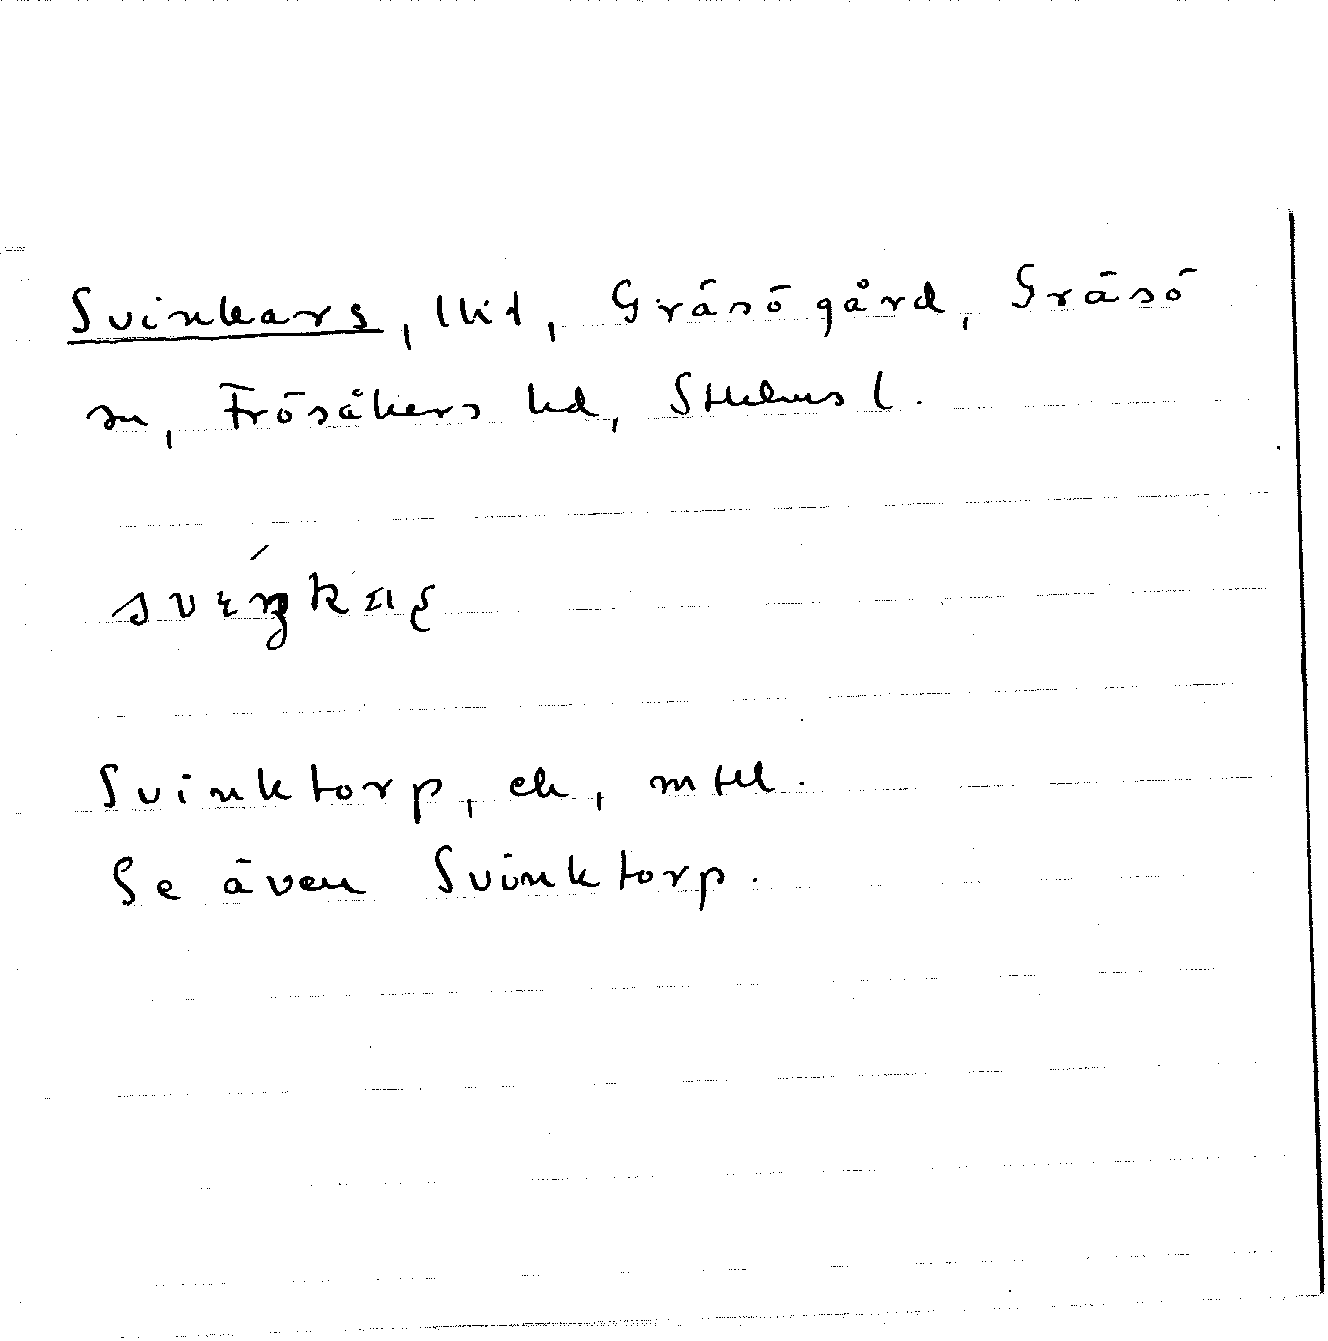 Svinkars, lht, Gräsögård, Gräsö
sn, Frösåkers hd, Sthlms l.
Svinktorp, ek, mtl.
Se även Svinktorp.